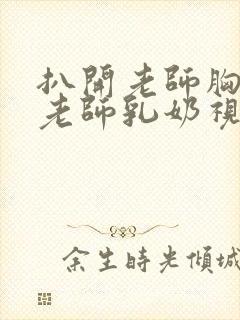 扒開老師胸
老師乳奶視
余生時光傾城